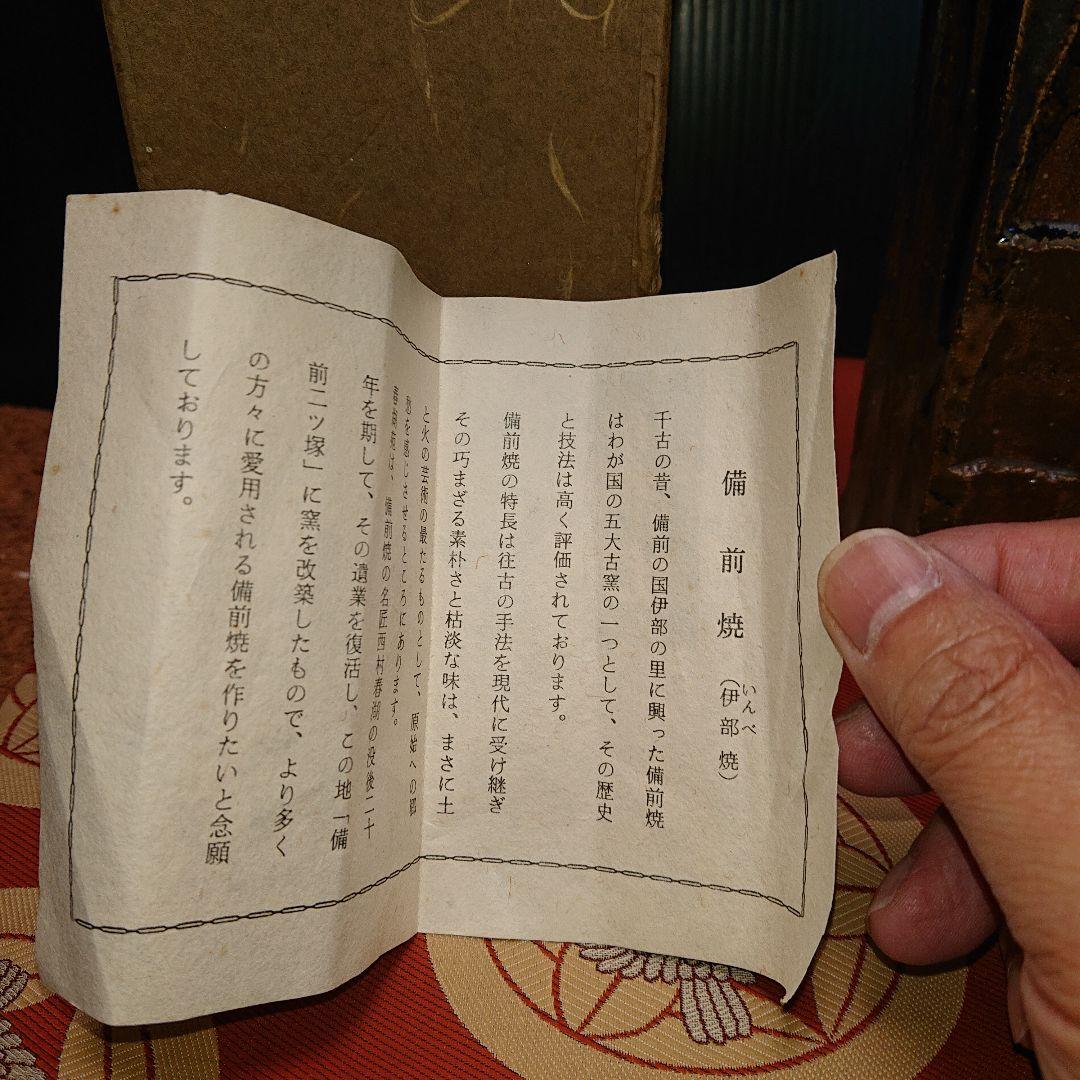 備前焼（伊部焼）
いんべ
千古の昔、備前の国伊部の里に興った備前焼
はわが国の五大古窯の一つとして、その歴史
と技法は高く評価されております。
備前焼の特長は往古の手法を現代に受け継ぎ
その巧まざる素朴さと枯淡な味は、まさに土
と火の芸術の最たるものとして、原始への郷
愁を感じさせるところにあります。
春湖苑は、備前焼の名匠西村春湖の没後二十
年を期して、その遺業を復活し、この地「備
前二ツ塚」に窯を改築したもので、より多く
の方々に愛用される備前焼を作りたいと念願
しております。